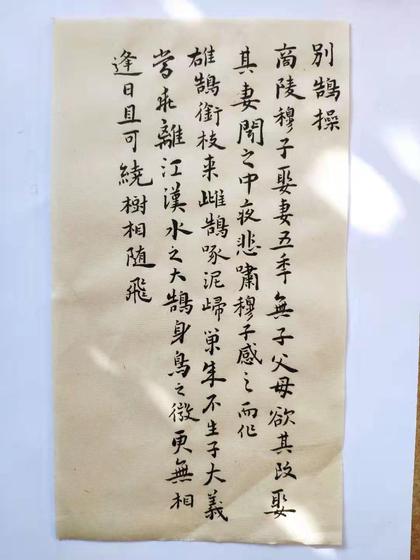 別鵠操
商陵穆子娶妻五年無子父母欲其改娶
其妻聞之中夜悲嘯穆子感之而作
雄鵠銜枝来雌鵠啄泥歸巢成不生子大義
當乖離江漢水之大鵠身鳥之微更無相
逢日且可繞樹相随飛